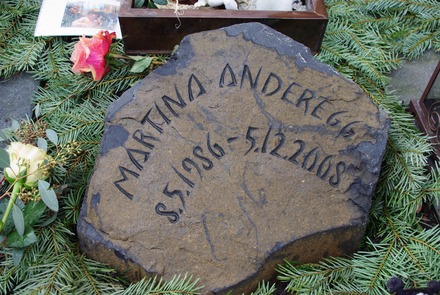 MARTINA ANDEREGG
8.5.1986 - 5.12.2008